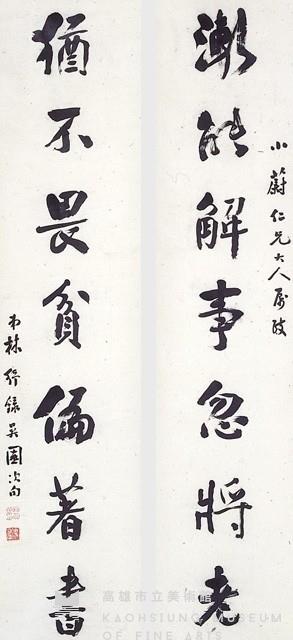 小蔚仁兄大人属政
漸能解事忽將老
猶不畏貧偏著書
小林行錄吳園次句
高雄市立美術館
KAOHSIUNG MUSEUM
OF FINE ARTS